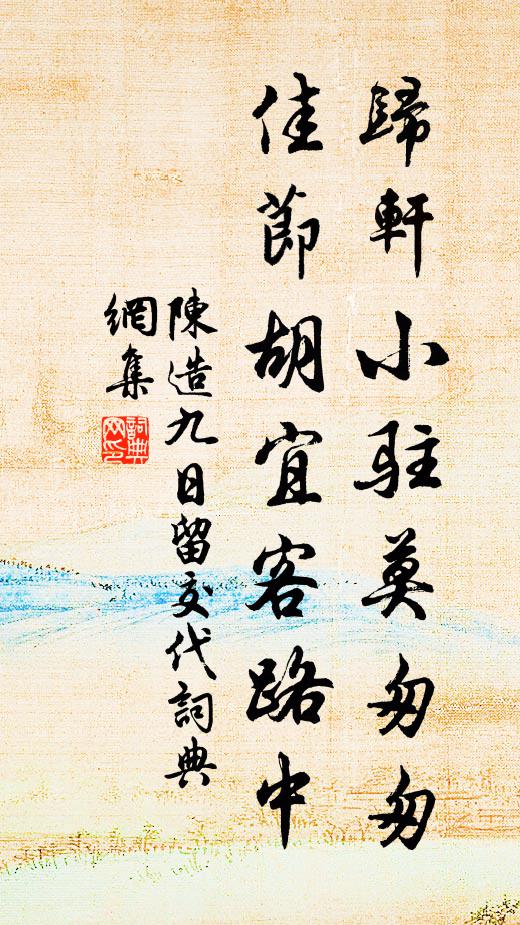 歸軒小駐莫匆匆
佳節胡宜客路中
陳造九日留交代詞典
網集
詞典
网印